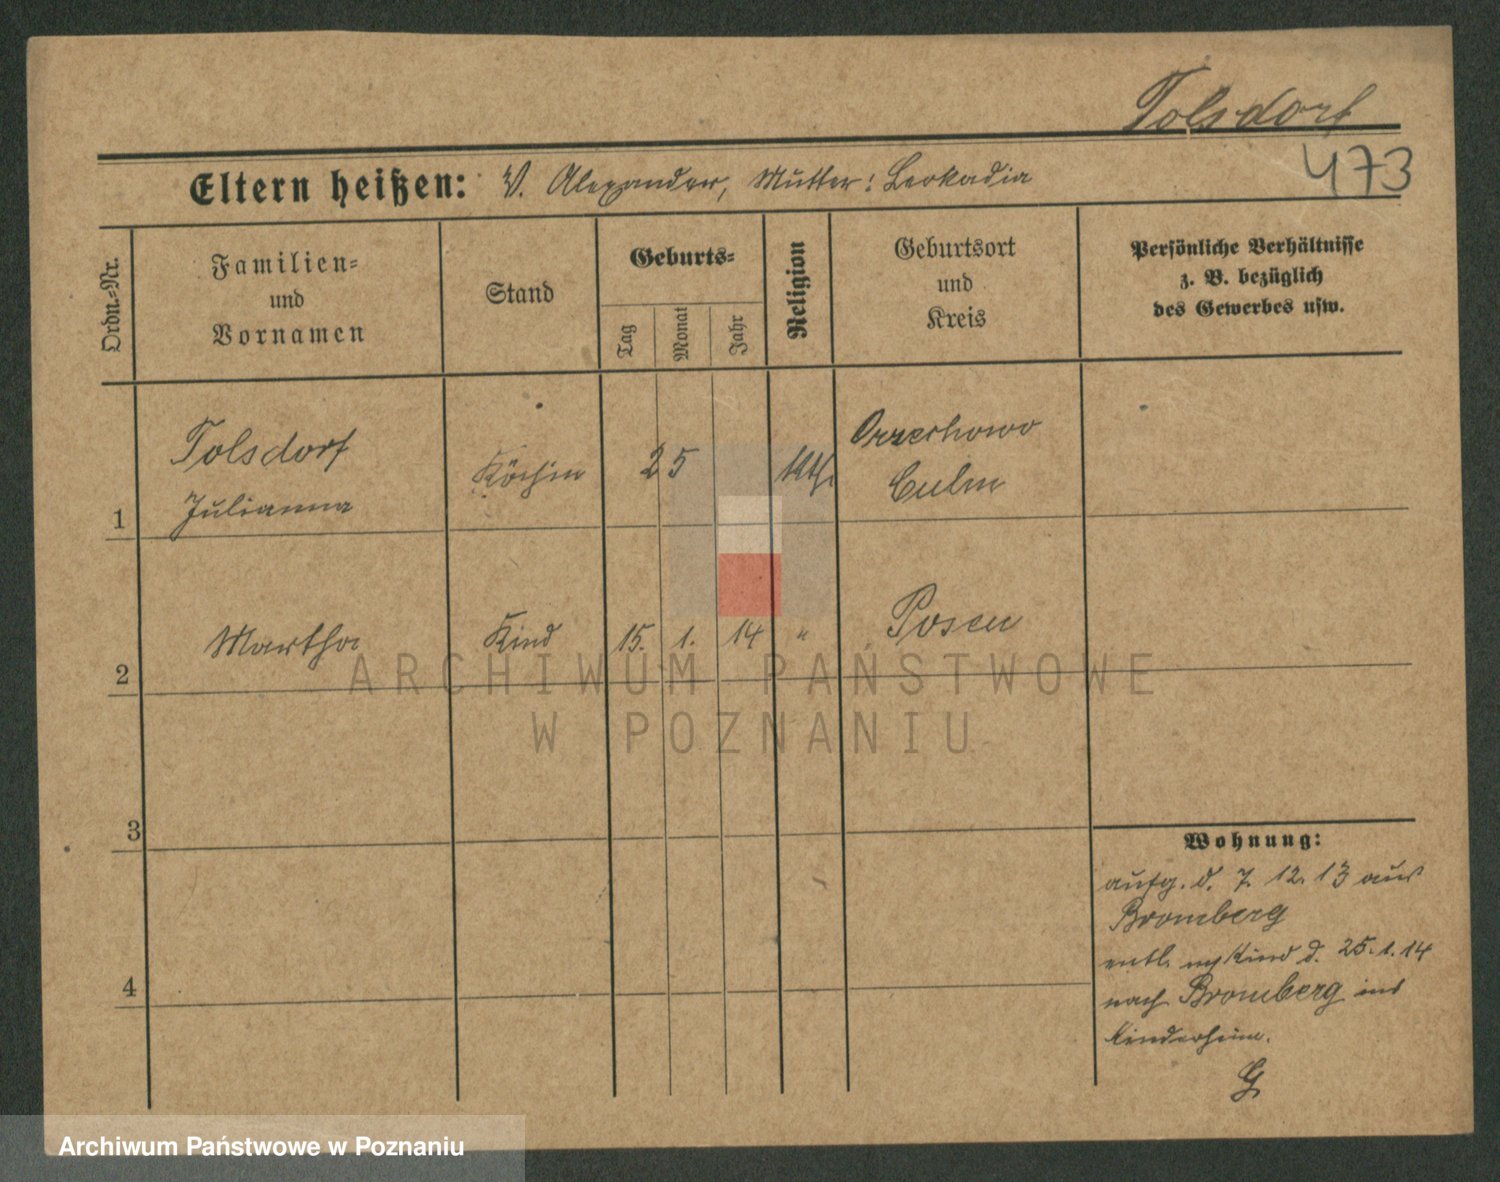 Tolsdorf
473
Eltern heißen: V. Alexander, Mutter: Leokadia
Ordn.-Nr.
Familien-
und
Vornamen
Stand
Geburts-
Tag
Monat
Jahr
Religion
Geburtsort
und
Kreis
Persönliche Verhältnisse
z. B. bezüglich
des Gewerbes usw.
1
Tolsdorf
Julianna
Köchin
25
kth.
Orzechowo
Culm
2
Martha
Kind
15. 1. 14
"
Posen
ARCHIWUM PAŃSTWOWE
W POZNANIU
3
4
Wohnung:
aufg. d. 7. 12. 13 aus
Bromberg
entl. Kind d. 25. 1. 14
nach Bromberg ins
Kinderheim.
G
Archiwum Państwowe w Poznaniu